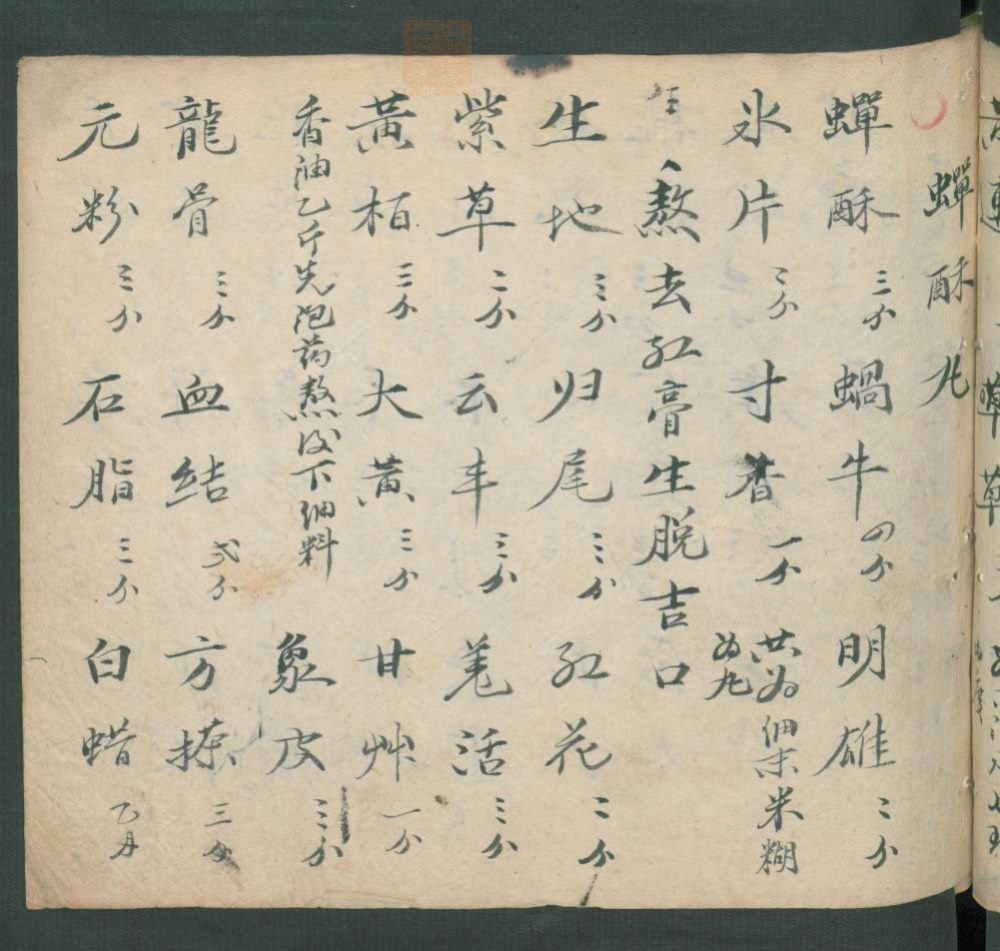 蟬酥丸
蟬酥 三分 蝸牛 四分 明雄 二分
氷片 三分 寸香 一分 共為細末米糊為丸
熬去紅膏生脱吉口
生地 三分 归尾 三分 紅花 二分
紫草 二分 云丰 三分 羗活 三分
黃柏 三分 大黃 三分 甘艸 一分
香油乙斤先泡药熬後下細料 象皮 三分
龍骨 三分 血結 弍分 方㯽 三分
元粉 三分 石脂 三分 白蜡 乙